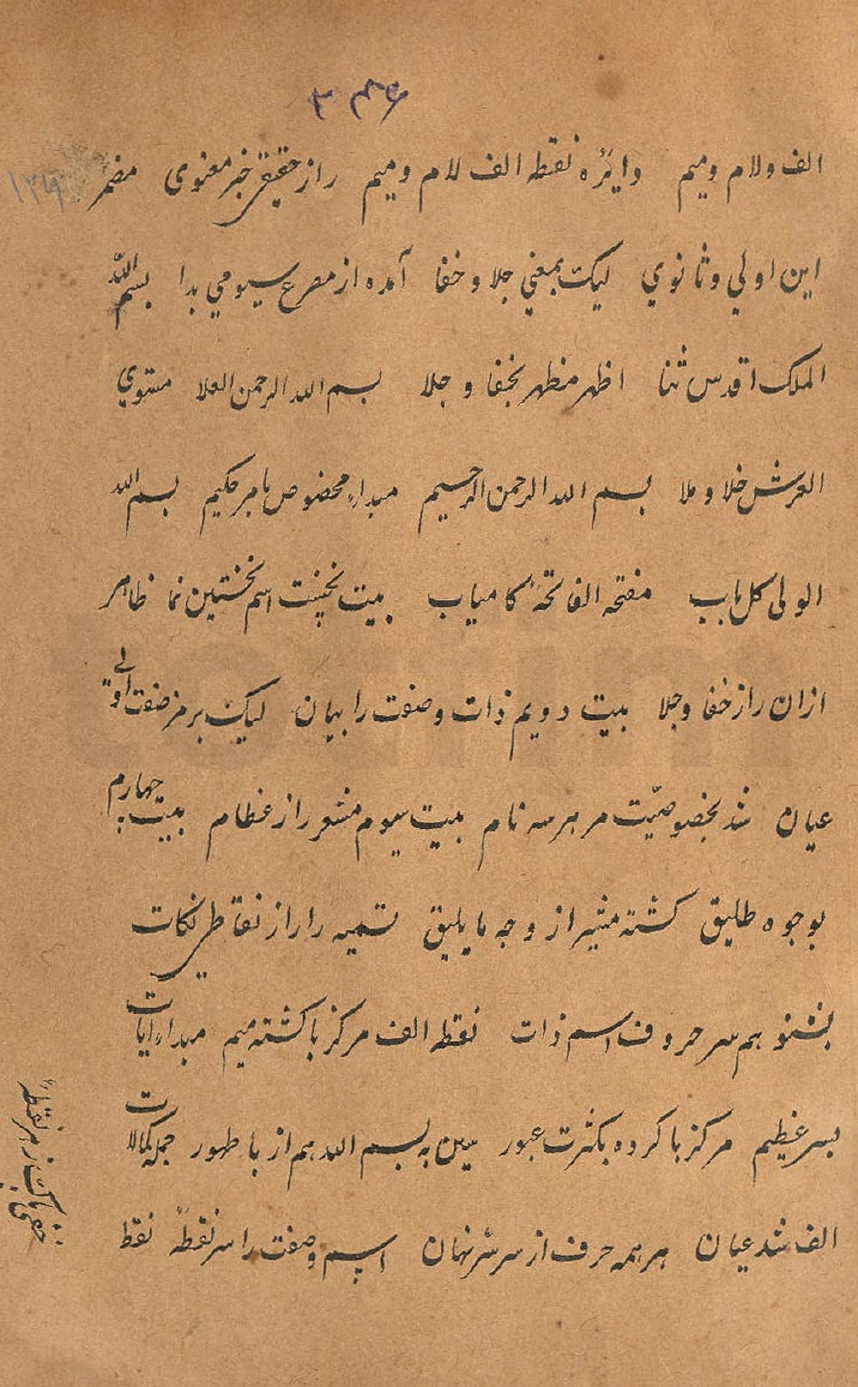 ۳۴۶
الف ولام ومیم دایرۀ نقطه الف لام ومیم راز حقیقی خبر معنوی مضمر
۱۳۹
این اولی وثانوی لیکت بمعنی جلا وخفا آمده از مصرع سیومی بدا بسم الله
الملک اقدس ثنا اظهر مظهر بخفا و جلا بسم الله الرحمن العلا مستوی
العرش خلا و ملا بسم الله الرحمن الرحیم مبداء مخصوص بامر حکیم بسم الله
الولی کل باب مفتحه الفاتحة کامیاب بیت نخست اسم نخستین نما ظاهر
ازان راز خفا وجلا بیت دویم ذات وصفت را بیان لیک برمز صفت اولی
عیان شد بخصوصیّت مر هر سه نام بیت سیوم مشعر راز عظام بیت چهارم
بوجوه طلیق کشته مشیر از وجه ما یلیق تسمیه را راز نقاطی نکات
بشنو هم سر حروف اسم ذات نقطه الف مرکز با کشته میم مبداء ایات
بسر عظیم مرکز با کرده بکثرت عبور سین به بسم الله هم از با ظهور جمله کمالات
الف شد عیان هر همه حرف از سر سر نهان اسم وصفت را سر نقطه نقط